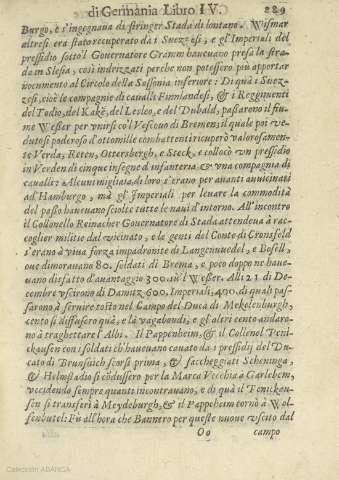 di Germania Libro IV. 289
Burgo, e s'ingegnaua di stringer Stada di lontano. Wismar
altresi era stato recuperato da i Suezzesi, e gl'Imperiali del
pressidio sotto'l Gouernatore Gramm haueuano presa la stra-
da in Slesia, così indrizzati perche non potessero più apportar
nocumento al Circolo della Sassonia inferiore: Di quà i Suez-
zesi, cioè le compagnie di caualli Finnlandesi, & i Reggimenti
del Todio, del Kakë, del Lesleo, e del Dubald, passarono il fiu-
me Wesser per vnirsi col Vescouo di Bremen; il quale poi ve-
dutosi poderoso d'ottomille combattenti ricuperò valorosamen-
te Verda, Reten, Ottersbergh, e Steck, e collocò vn pressidio
in Verden di cinque insegne d'infanteria & vna compagnia di
caualli: Alcuni migliaia di loro s'erano per auanti auuicinati
ad Hamburgo, mà gl'Imperiali per leuare la commodità
del passo haueuano sciolte tutte le naui d'intorno. All'incontro
il Collonello Reinacher Gouernatore di Stada attendeua à rac-
coglier militie dal vicinato, e le genti del Conte di Cronsfeld
s'erano à viua forza impadronite di Langenuuedel, e Bosell,
oue dimorauano 80. soldati di Brema, e poco doppo ne haue-
uano disfatto d'auantaggio 300. in sù'l Wesser. Alli 21. di De-
cembre vscirono di Damitz 600. Imperiali, 400. di quali pas-
sarono à seruire tosto nel Campo del Duca di Mekelenburgh,
cento si diffusero quà, e là vagabondi, e gl'altri cento andaro-
no à traghettare l'Albi. Il Pappenheim, & il Collenel Fenic-
ckausen con i soldati ch'haueuano cauato da i pressidij del Du-
cato di Brunsuich scorsi prima, & saccheggiati Scheninga,
& Helmstadio si cōdussero per la Marca Vecchia à Garleben,
vccidendo sempre quanti incontrauano, e di quà il Fenickau-
sen si transferì à Meydeburgh, & il Pappeheim tornò à Wol-
fenbutel: Fù all'hora che Bannero per queste nuoue vscito dal
Oo campo
Colección ABANCA